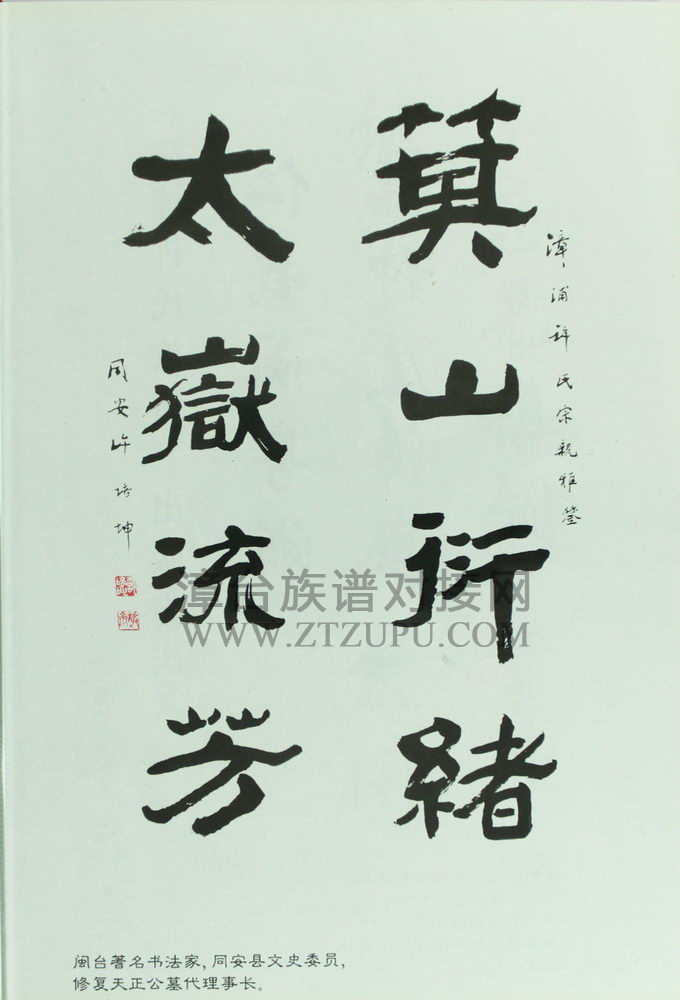 漳浦許氏宗親雅鑒
箕山衍緒
太嶽流芳
同安許培坤
漳台族谱对接网
WWW.ZTZUPU.COM
闽台著名书法家，同安县文史委员，
修复天正公墓代理事长。